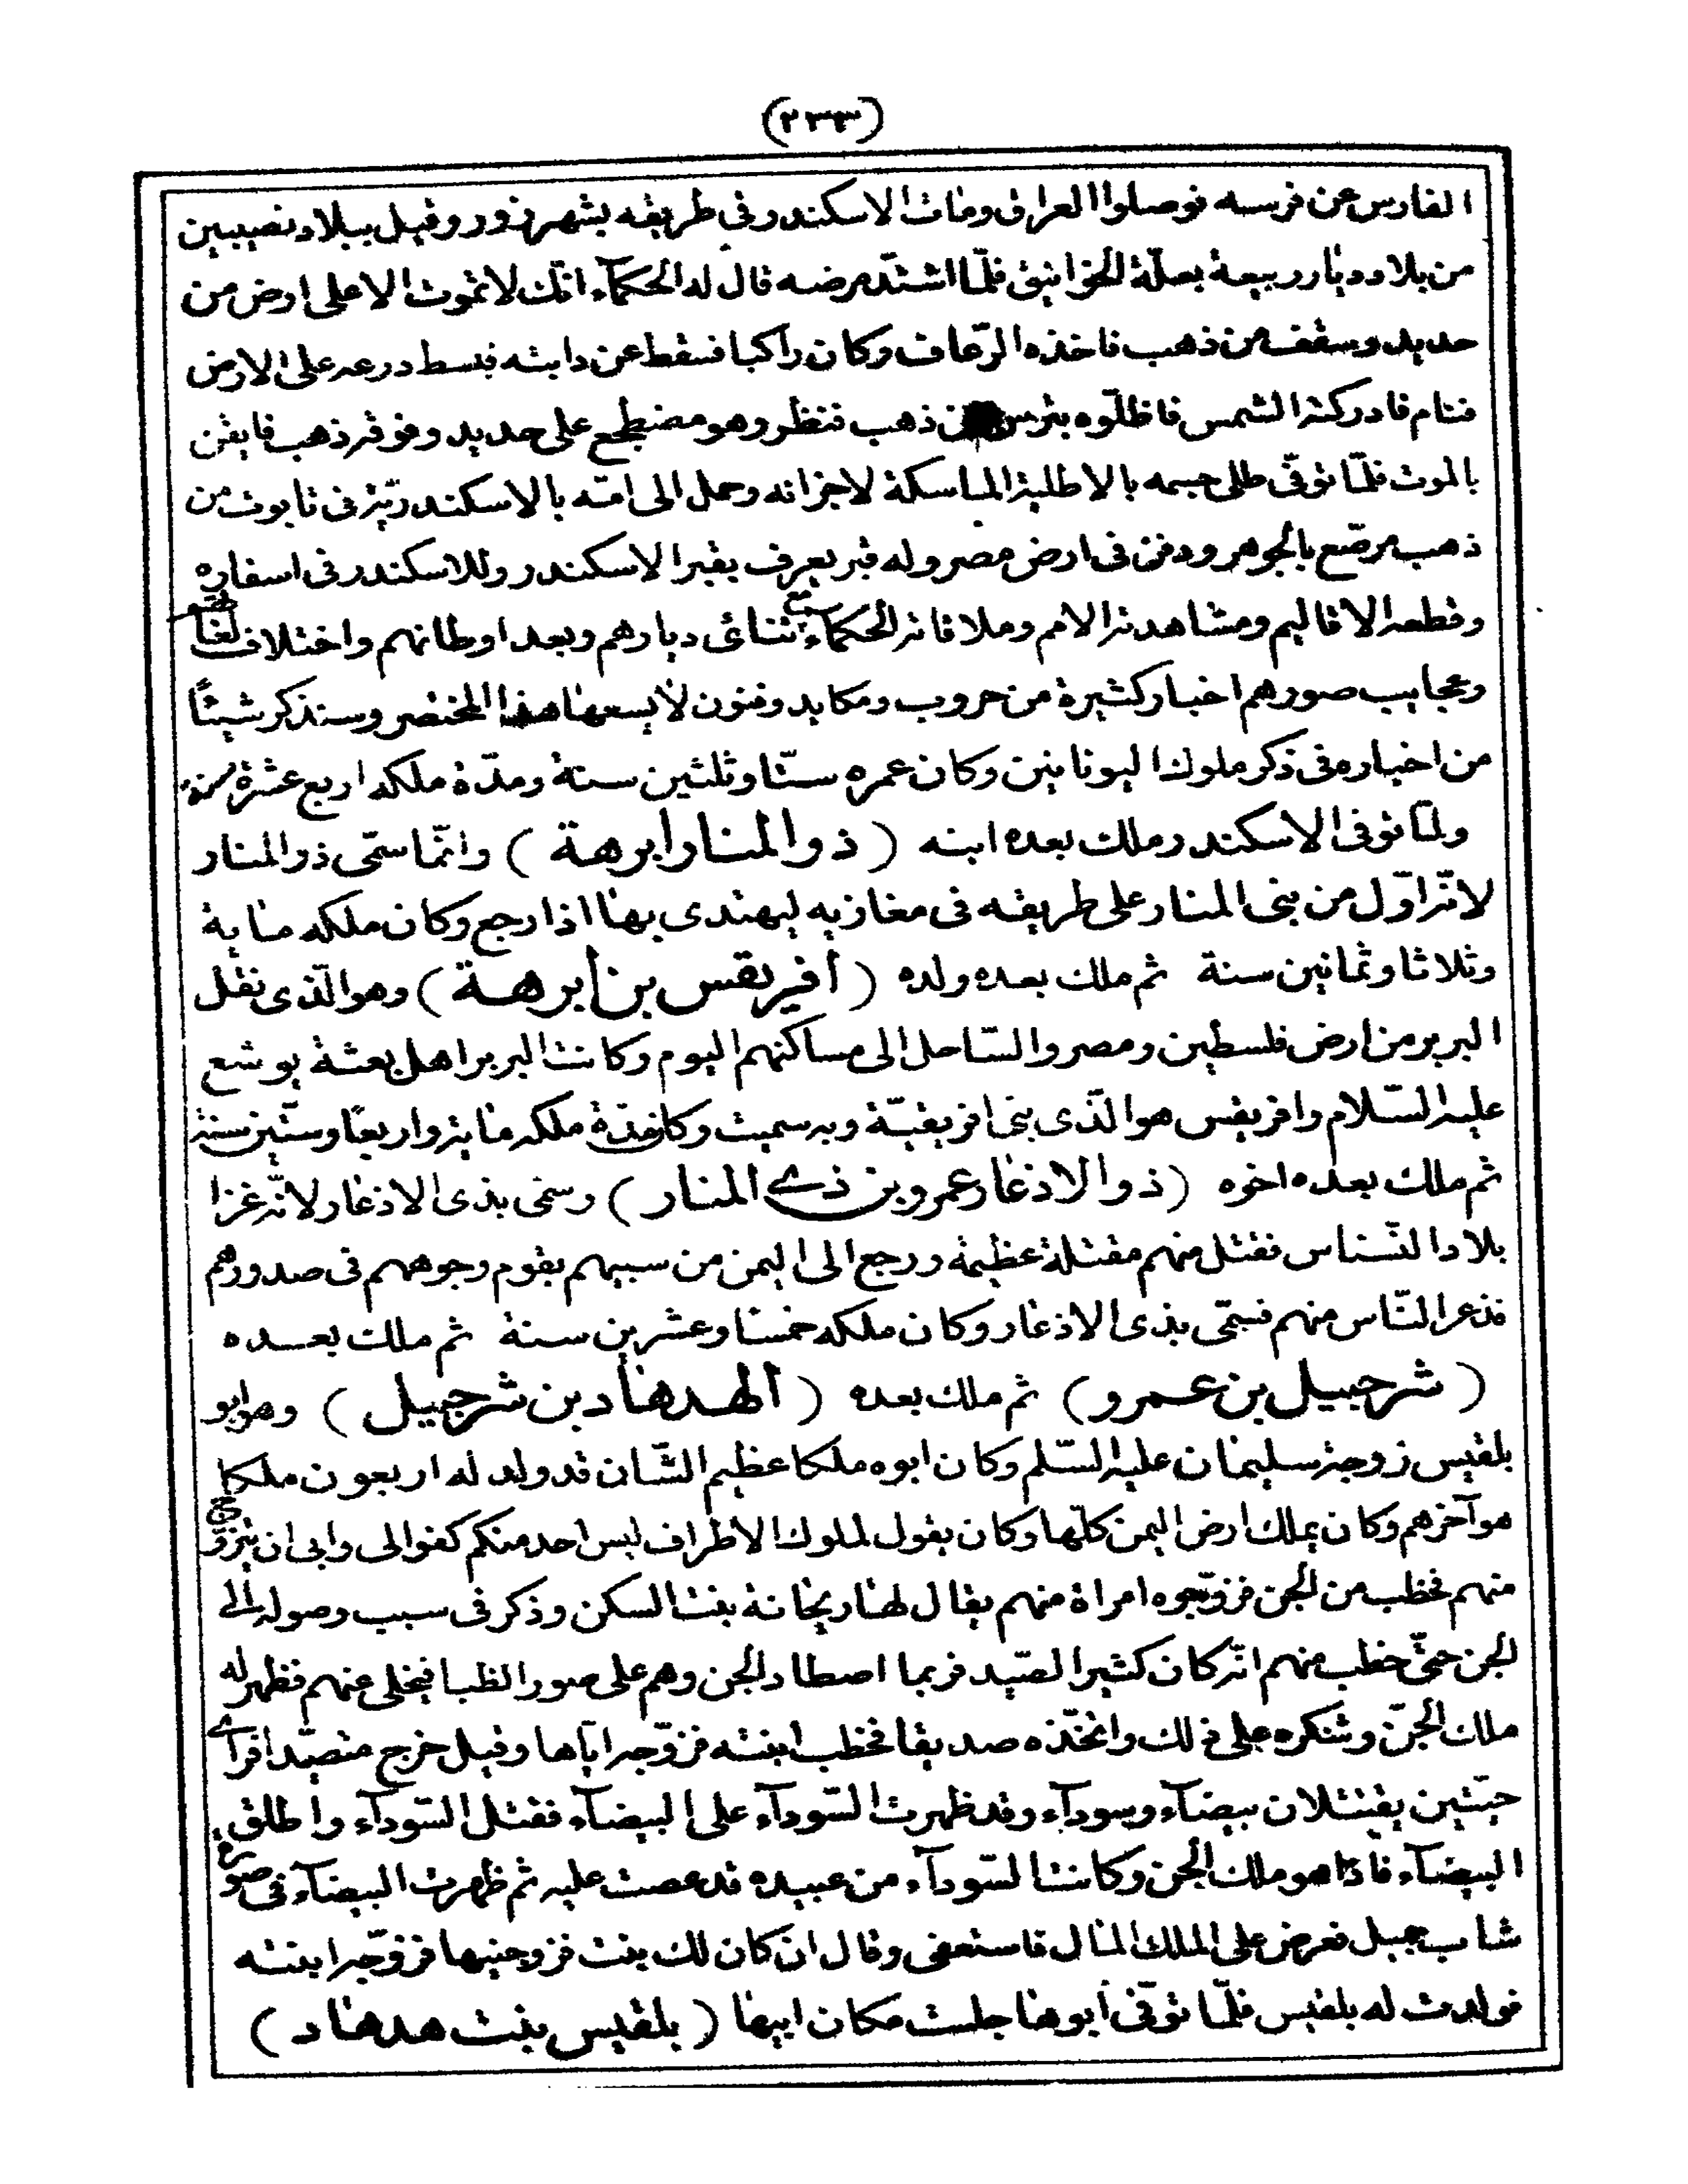 (٢٣٣)
الفارس عن فرسه فوصلوا العراق ومات الاسكندر في طريقه بشهرزور وقيل ببلاد نصيبين
من بلاد ديار ربيعة بعلّة الخوانيق فلمّا اشتدّ مرضه قال له الحكمآء انّك لا تموت الا على ارض من
حديد وسقف من ذهب فاخذه الرّعاف وكان راكبا فسقط عن دابته فبسط درعه على الارض
فنام فادركته الشمس فاظلّوه بترس من ذهب فنظر وهو مضطجع على حديد وفوقه ذهب فايقن
بالموت فلمّا توفّى طلى جسمه بالاطلية الماسكة لاجزائه وحمل الى امّه بالاسكندريّة فى تابوت من
ذهب مرصّع بالجوهر ودفن فى ارض مصر وله قبر يعرف بقبر الاسكندر وللاسكندر فى اسفاره
وقطعه الاقاليم ومشاهدته الامم وملاقاته الحكمآء مع تنائى ديارهم وبعد اوطانهم واختلاف لغاتهم
وعجايب صورهم اخبار كثيرة من حروب ومكايد وفنون لا يسعها هذا المختصر وسنذكر شيئًا
من اخباره فى ذكر ملوك اليونانين وكان عمره ستّا وثلثين سنة ومدّة ملكه اربع عشرة سنة
ولمّا توفى الاسكندر ملك بعده ابنه (ذو المنار ابرهة) وانّما سمّى ذو المنار
لانّه اوّل من بنى المنار على طريقه فى مغازيه ليهتدى بها اذا رجع وكان ملكه ماية
وثلاثا وثمانين سنة ثم ملك بعده ولده (أفريقس بن أبرهة) وهو الّذى نقل
البربر من ارض فلسطين ومصر والسّاحل الى مساكنهم اليوم وكانت البربر اهل بعثة يوشع
عليه السّلام وافريقس هو الّذى بنى افريقيّة وبه سميت وكان مدّة ملكه ماية واربعًا وستّين سنة
ثم ملك بعده اخوه (ذو الاذغار عمرو بن ذى المنار) وسمّى بذى الاذغار لانّه غزا
بلاد النّسناس فقتل منهم مقتلة عظيمة ورجع الى اليمن من سبيهم بقوم وجوههم فى صدورهم
فذعر النّاس منهم فسمّى بذى الاذغار وكان ملكه خمسا وعشرين سنة ثم ملك بعده
(شرحبيل بن عمرو) ثم ملك بعده (الهدهاد بن شرحبيل) وهو ابو
بلقيس زوجة سليمان عليه السّلم وكان ابوه ملكا عظيم الشّان قد ولد له اربعون ملكا
هو آخرهم وكان يملك ارض اليمن كلّها وكان يقول لملوك الاطراف ليس احد منكم كفوا لى وابى ان يتزوّج
منهم فخطب من الجن فزوّجوه امراة منهم يقال لها ريحانة بنت السكن وذكر فى سبب وصوله الى
الجن حتّى خطب منهم انّه كان كثير الصّيد فربما اصطاد الجن وهم على صور الظبا فيخلى عنهم فظهر له
ملك الجنّ وشكره على ذلك واتّخذه صديقا فخطب ابنته فزوّجه ايّاها وقيل خرج متصيّدا فرآى
حيّتين يقتتلان بيضآء وسودآء وقد ظهرت السّودآء على البيضآء فقتل السّودآء واطلق
البيضآء فاذا هو ملك الجن وكانت السّودآء من عبيده قد عصت عليه ثم ظهرت البيضآء فى صورة
شاب جميل فعرض على الملك المال فاستعفى وقال ان كان لك بنت فزوجنيها فزوّجه ابنته
فولدت له بلقيس فلمّا توفّى أبوها جلست مكان ابيها (بلقيس بنت هدهاد)